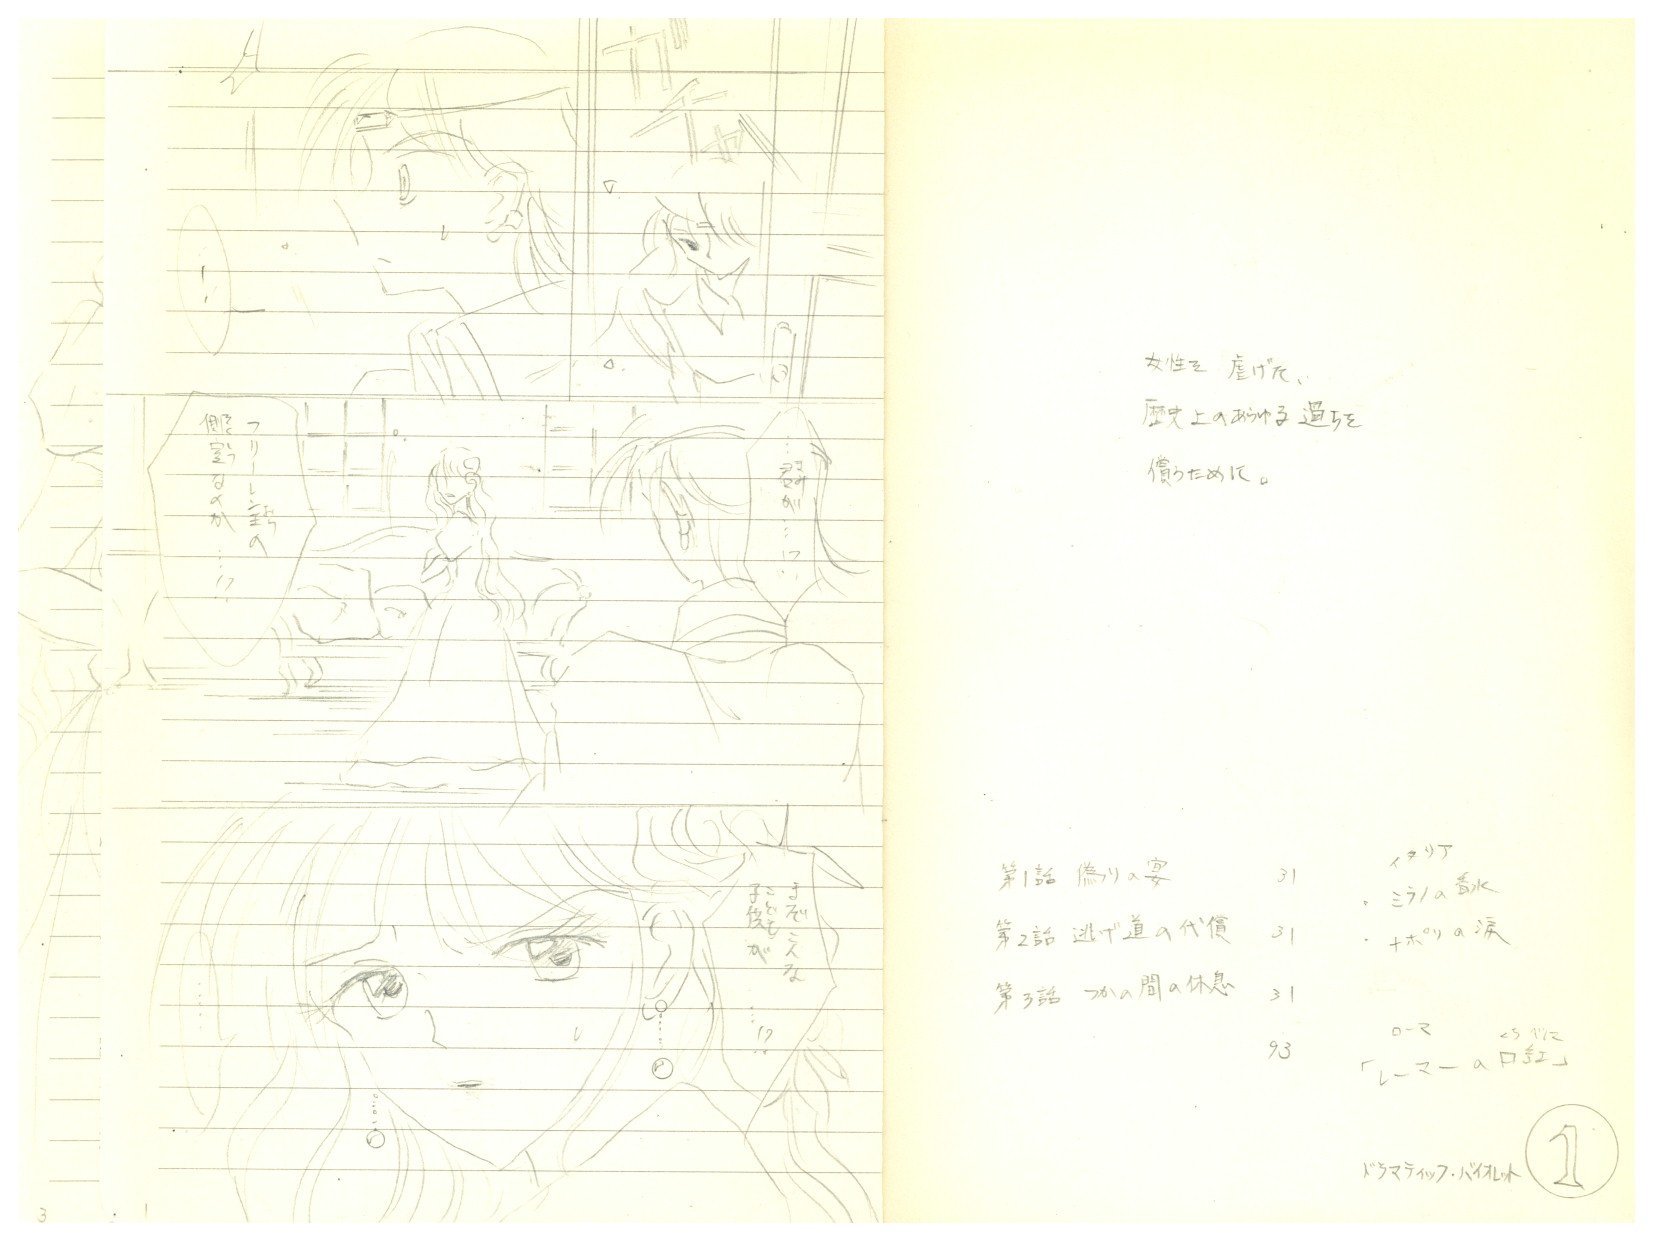 ガ
タ
ッ
…君が…!?
きみ
フリーレン郡の
側室なのか……!?
そくしつ
まだこんな
子供が
こども
……!?
女性を虐げた、
歴史上のあらゆる過ちを
償うために。
第1話 偽りの宴 31
第2話 逃げ道の代償 31
第3話 つかの間の休息 31
93
イタリア
・ミラノの香水
・ナポリの涙
ローマ
くちべに
「レーマーの口紅」
ドラマティック・バイオレット
1
3
1